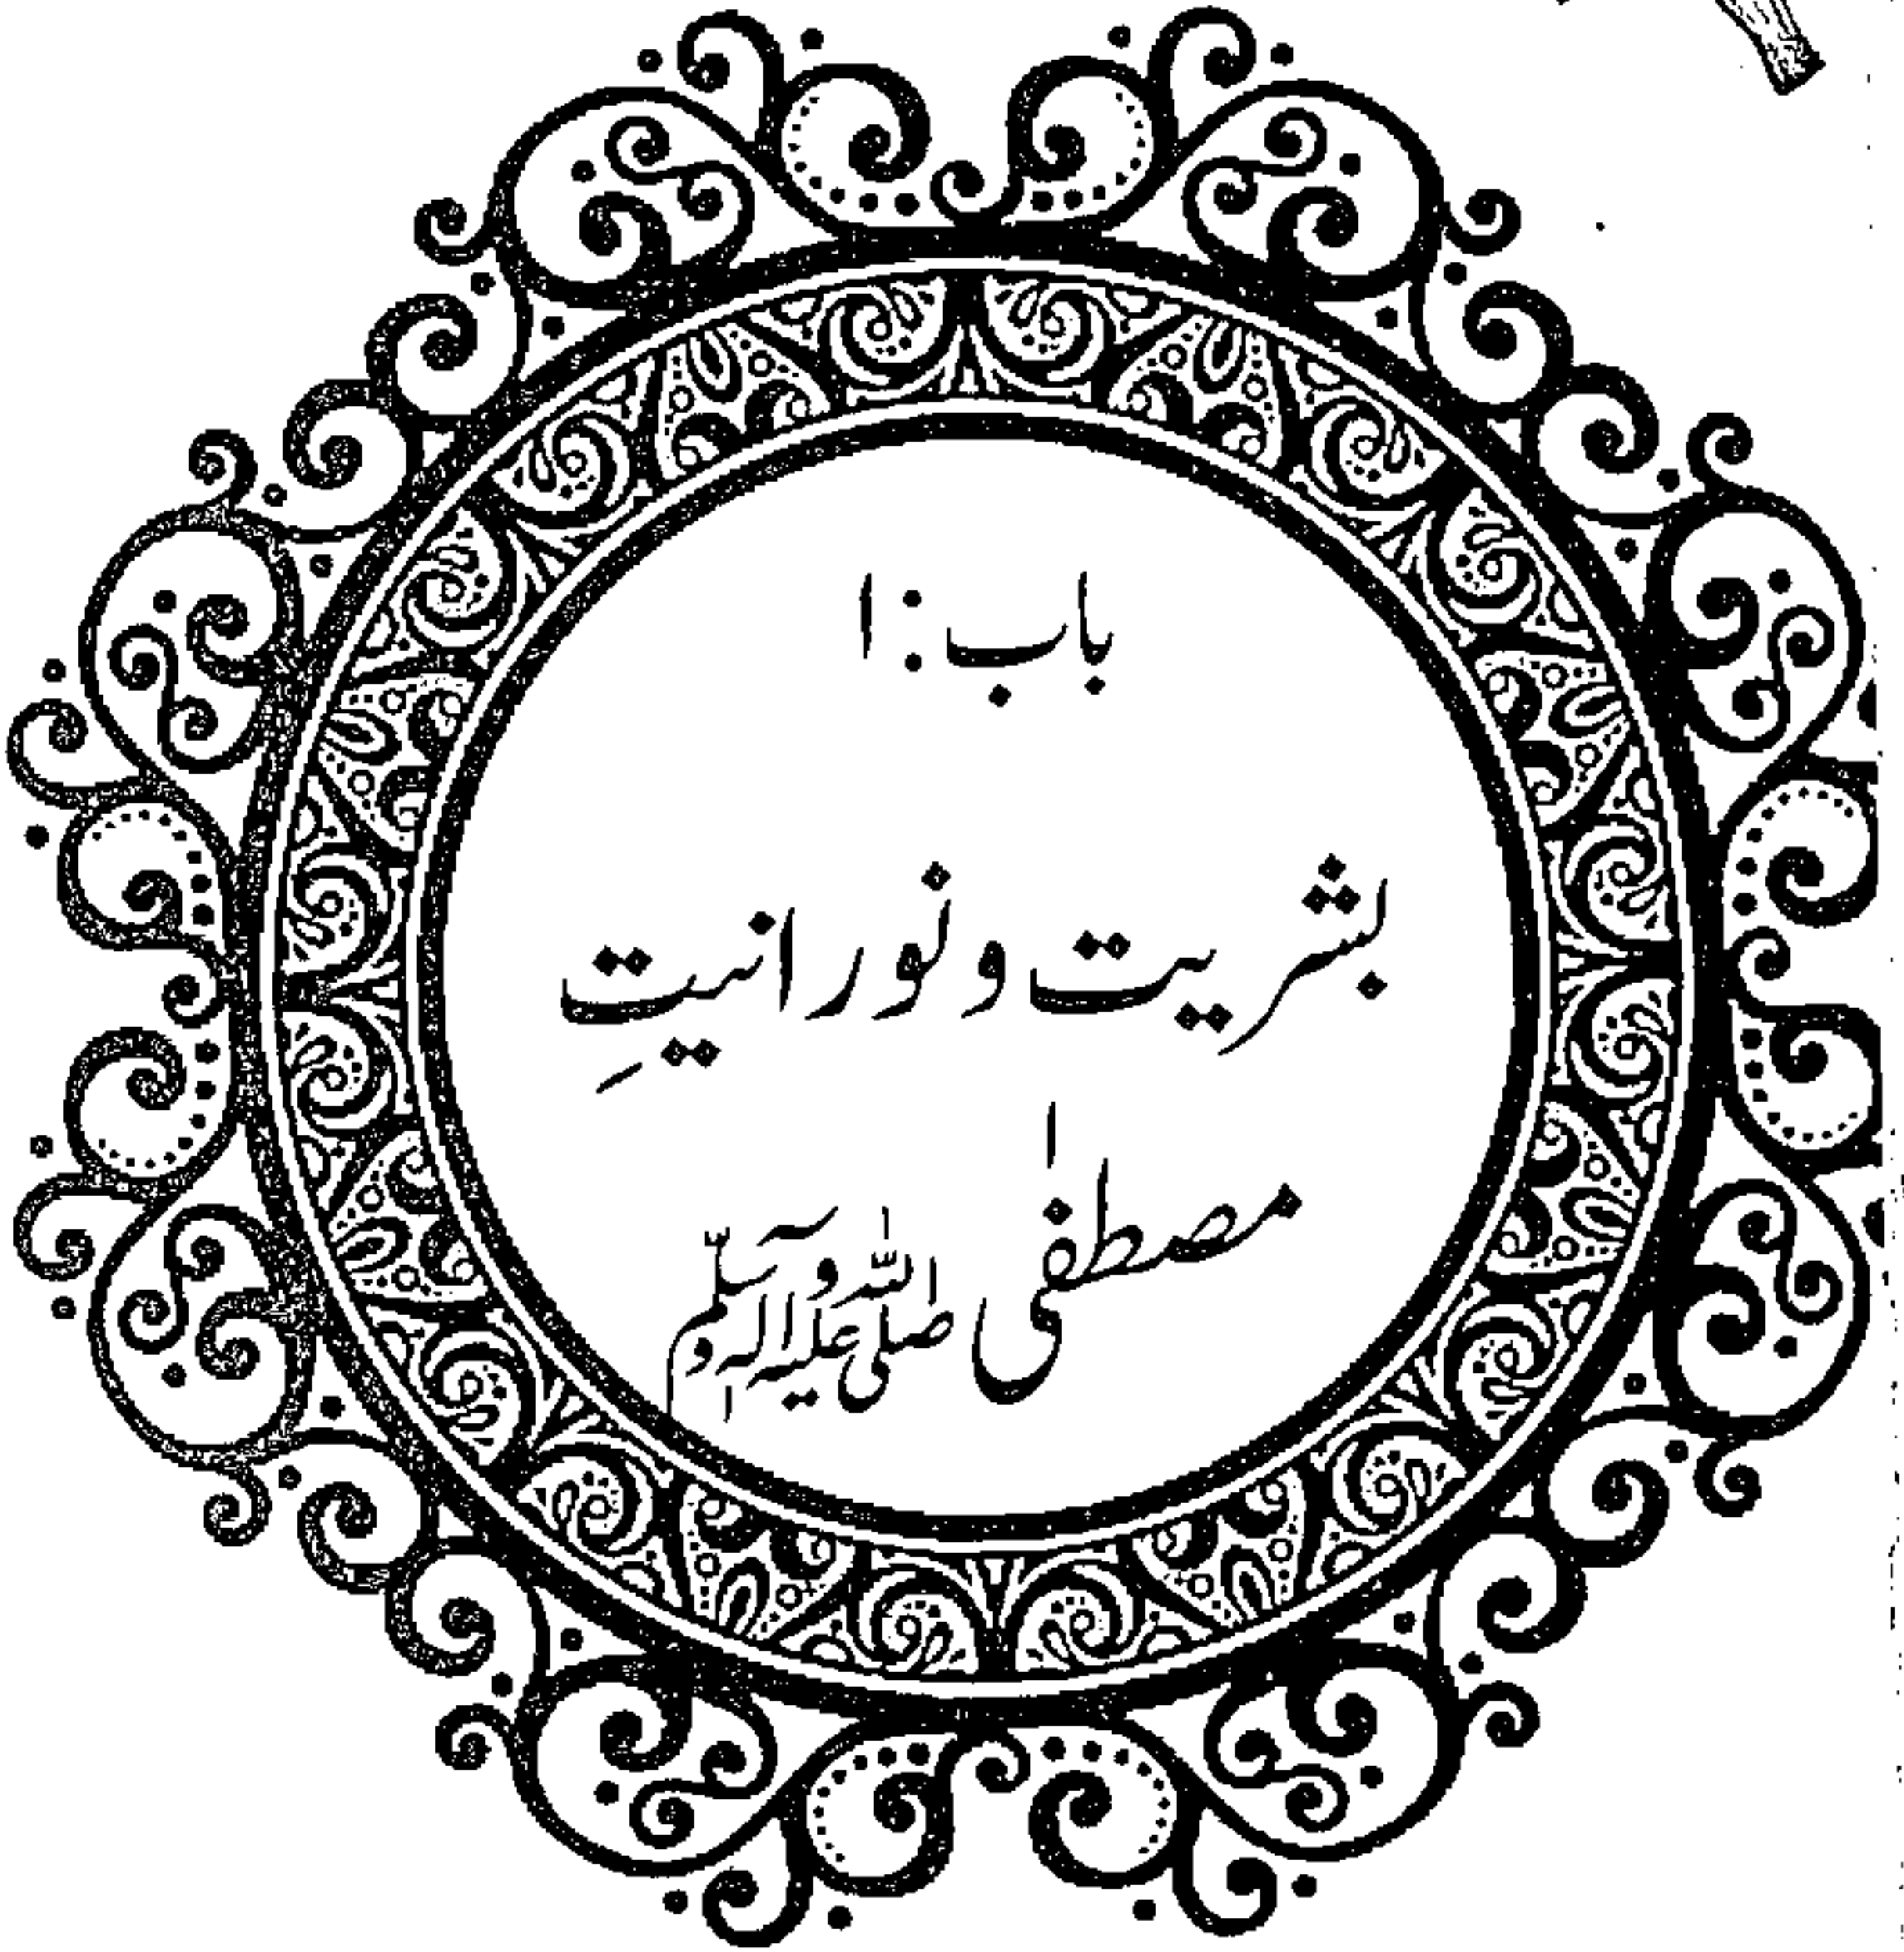 باب:۱
بشریت و نورانیتِ
مصطفٰی صلی اللہ علیہ وآلہ وسلم